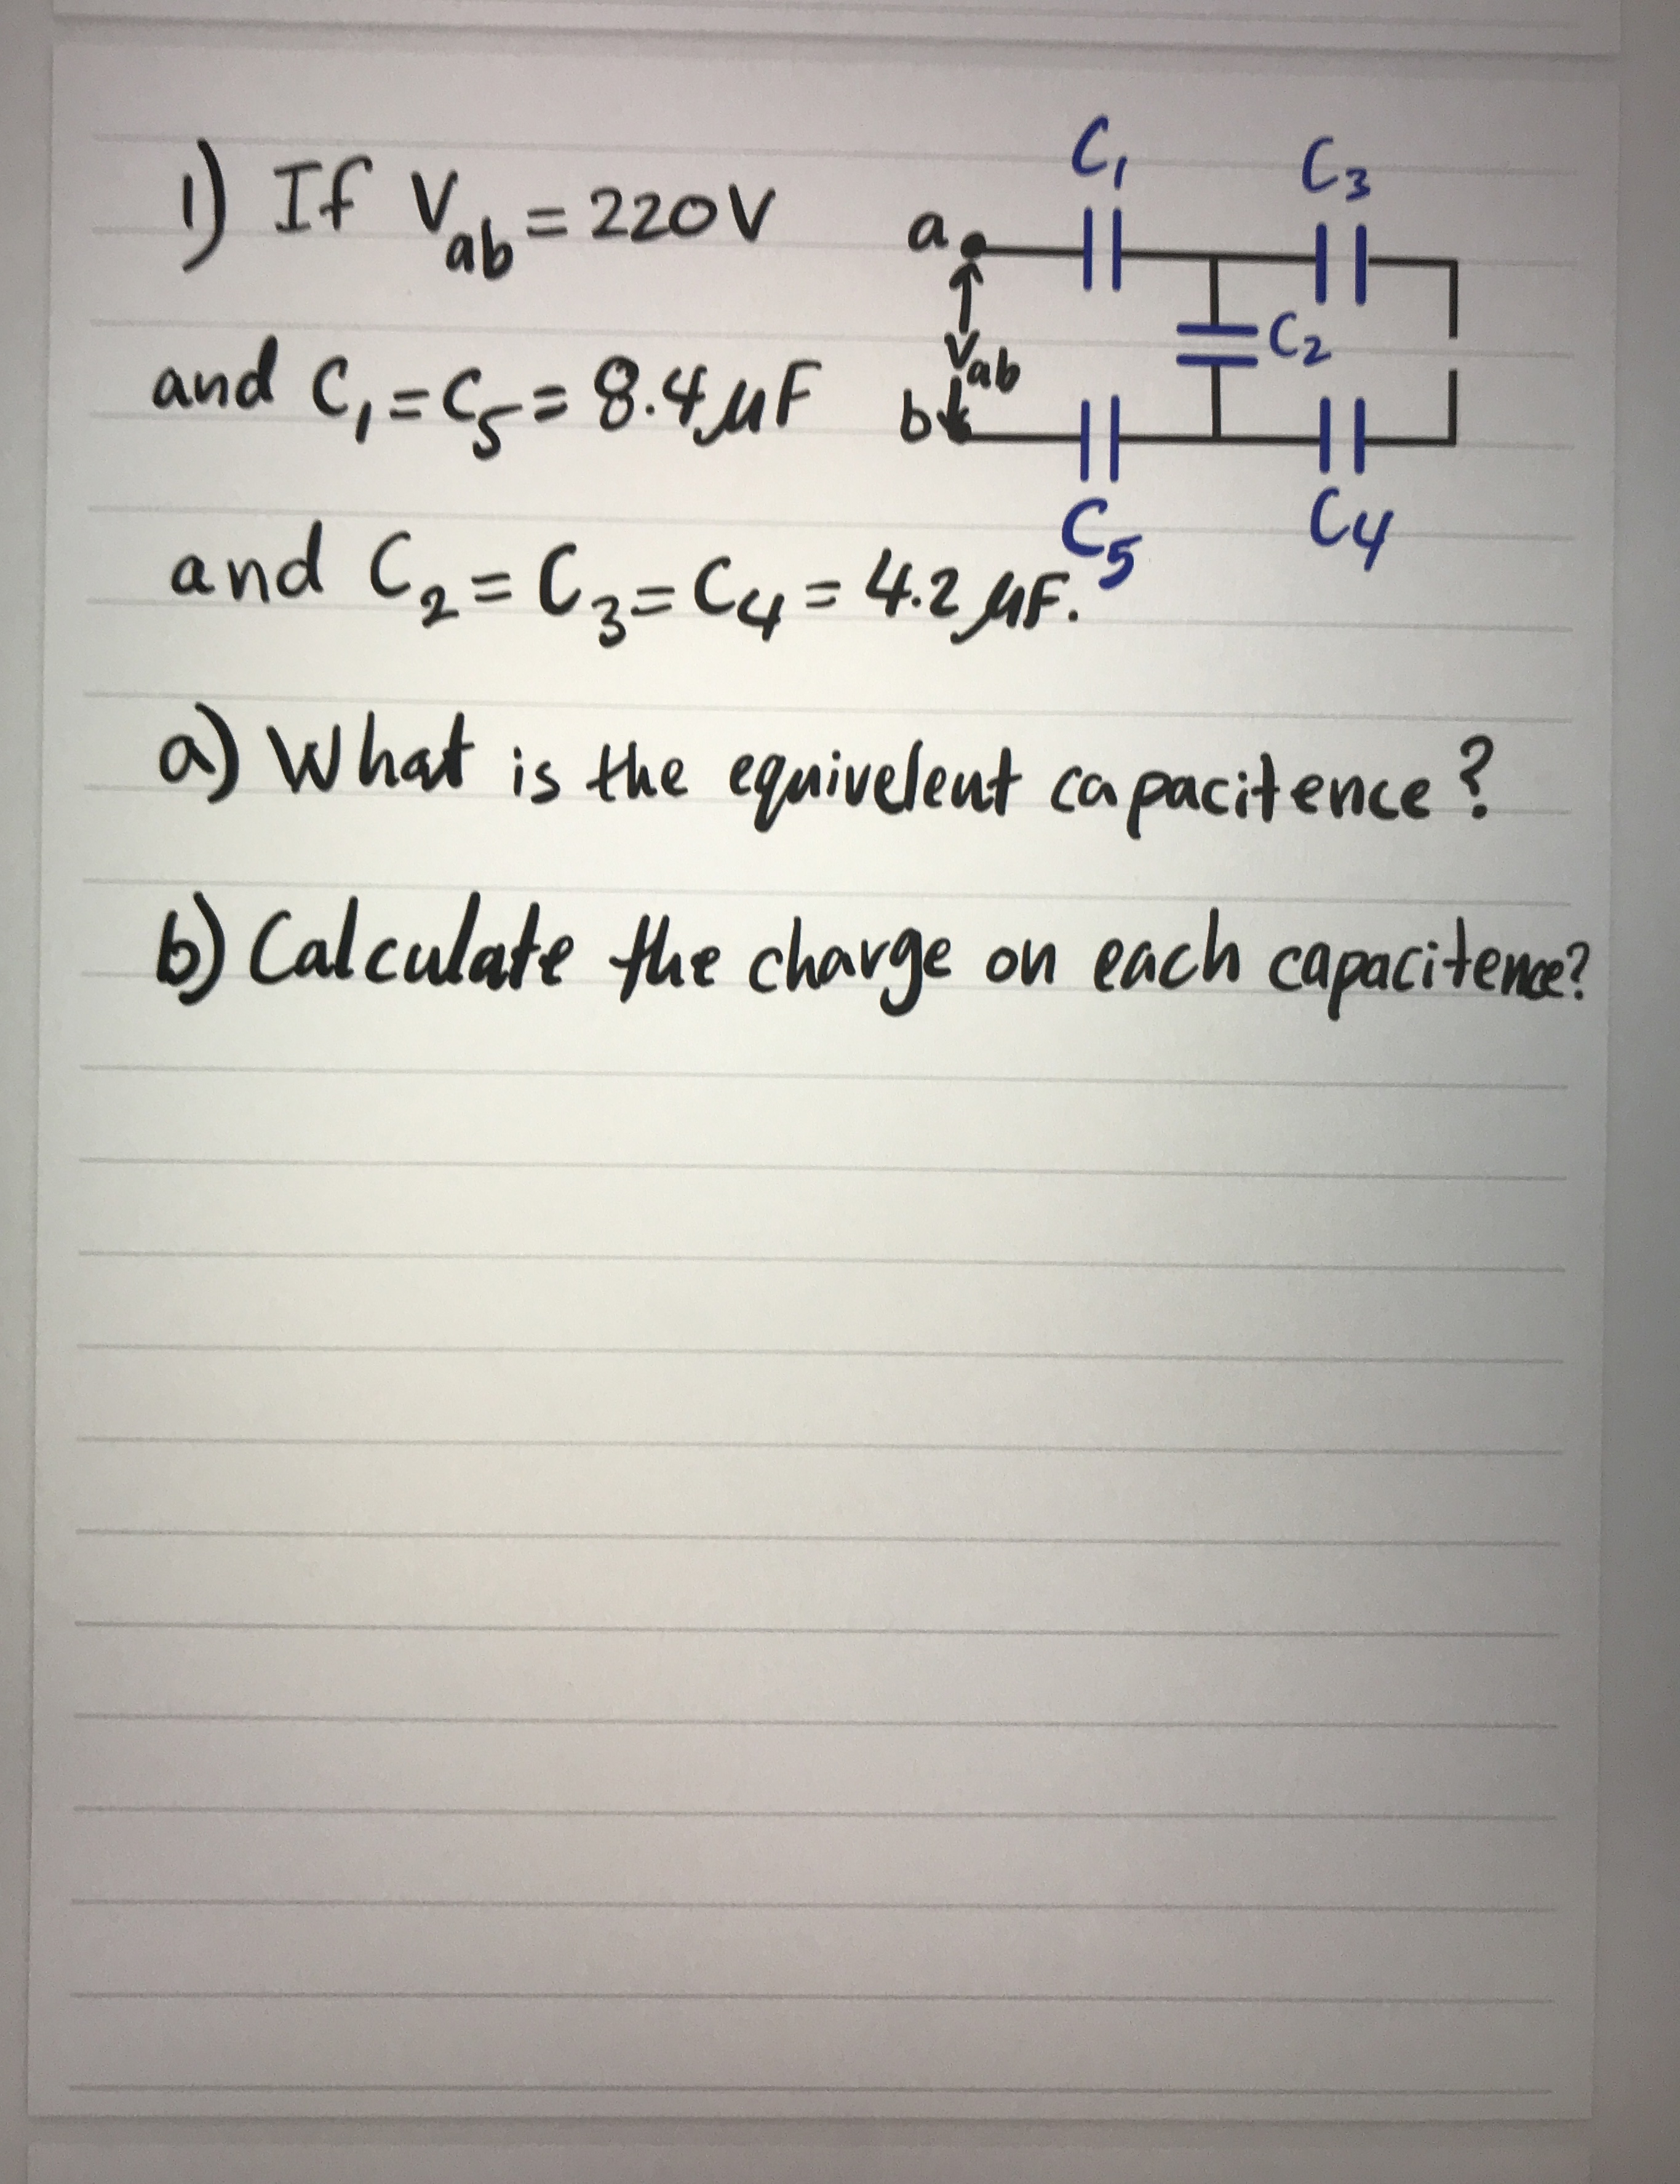 1) If Vab = 220V
and C1 = C5 = 8.4 μF
and C2 = C3 = C4 = 4.2 μF.
C1
C3
a
Vab
C2
b
C5
C4
a) What is the equivelent capacitence?
b) Calculate the charge on each capacitence?